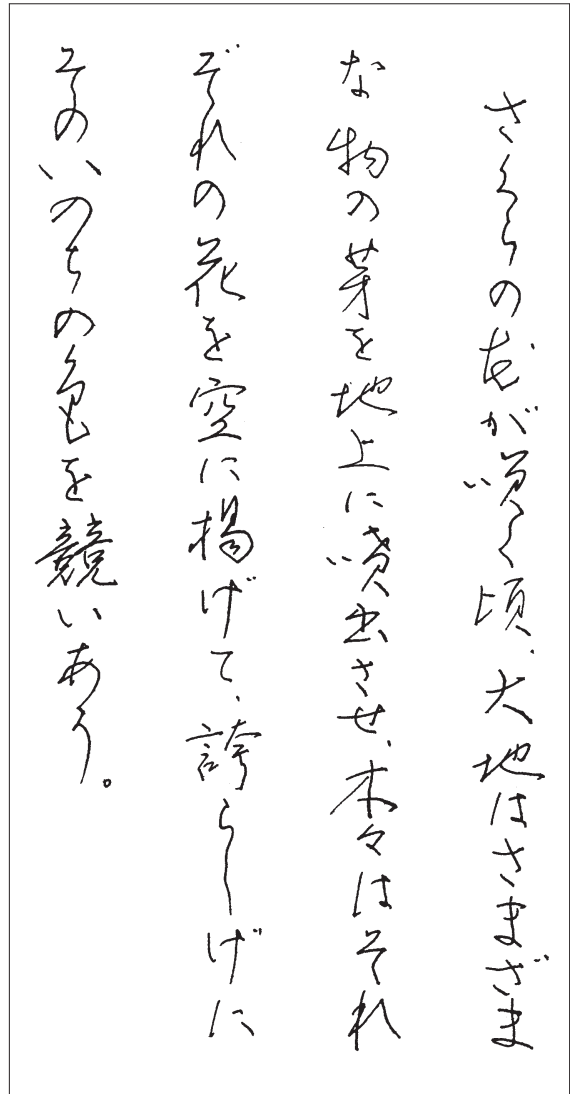 さくらの花が咲く頃、大地はさまざま
な物の芽を地上に噴出させ、木々はそれ
ぞれの花を空に揚げて、誇らしげに
そのいのちの色を競いあう。